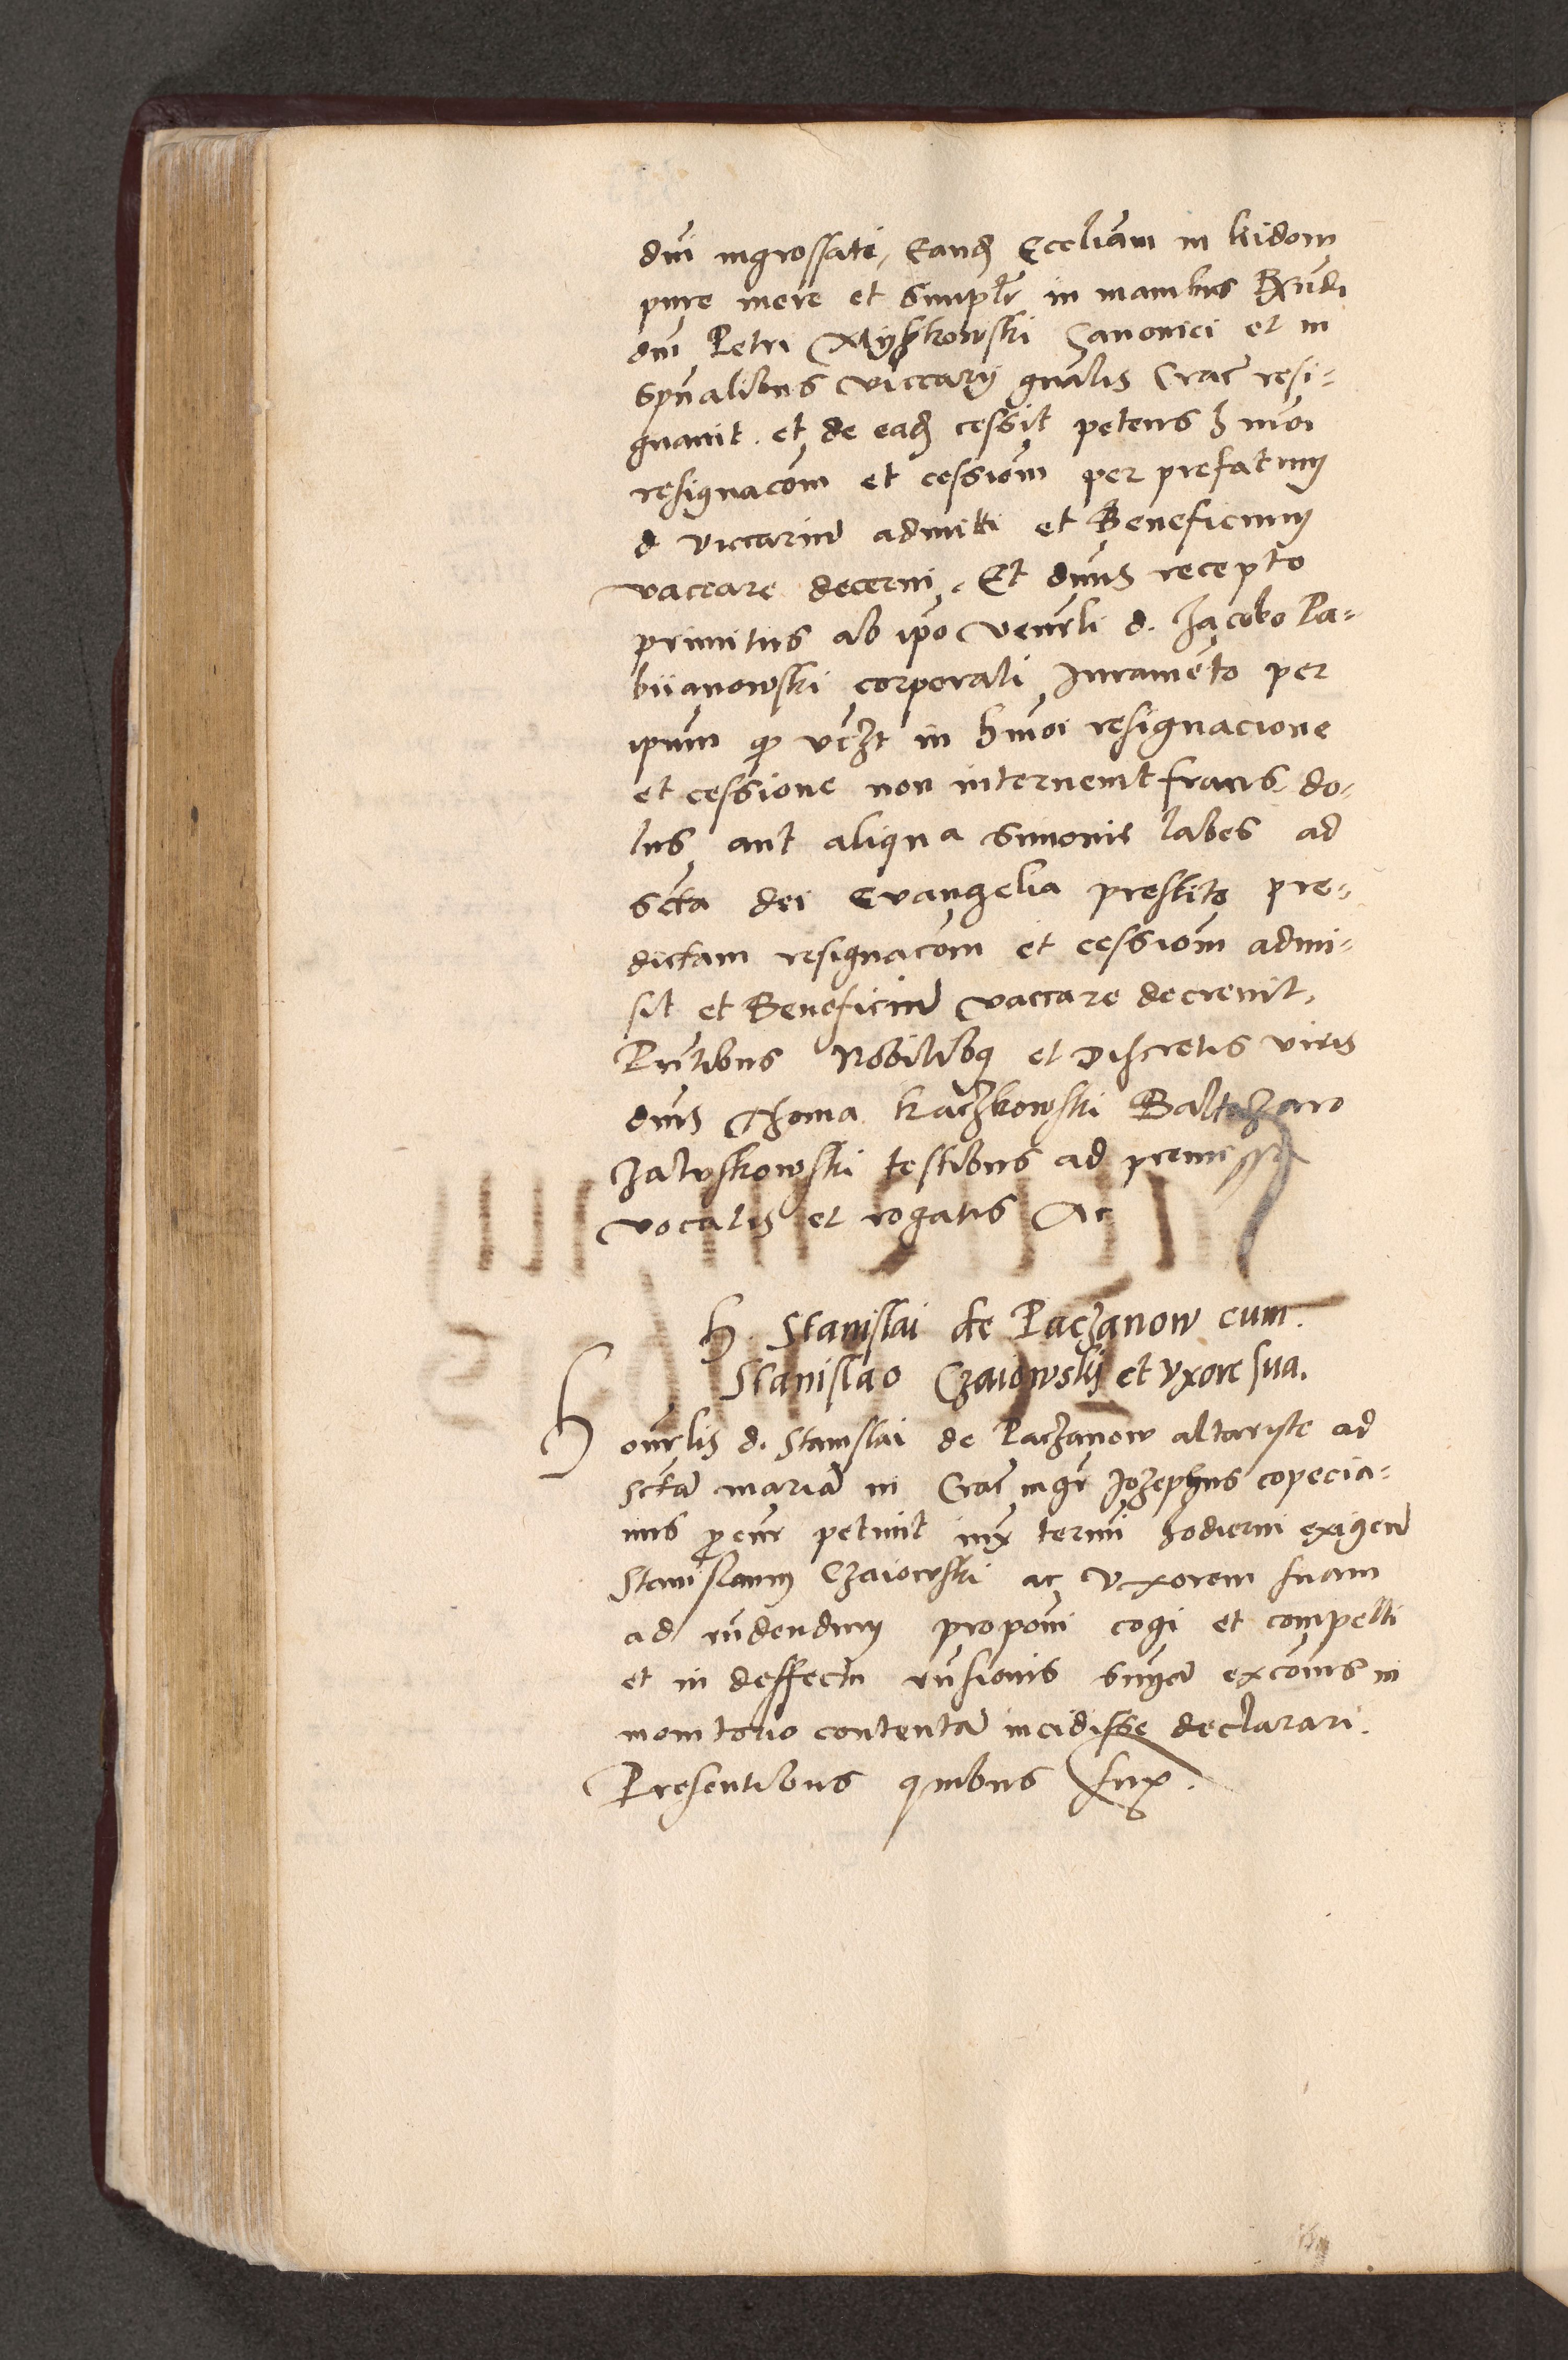 dni ingrossati, Eandem Eccliam in kidom
pure mere et simplr in manibus Rndi
dni Petri Myshkowski Canonici et in
spualibus viccarii gnalis Crac resi=
gnavit et de eadem cessit petens hmoi
resignacom et cessiom per prefatum
d viccarium admitti et Beneficium
vaccare decerni. Et dnus recepto
primitus ab ipo Venrli d. Jacobo Pa=
biianowski corporali Juramento per
ipum q videlicet in hmoi resignacione
et cessione non intervenit fraus, do=
lus aut aliqua simonie labes ad
scta dei Evangelia prestito pre=
dictam resignacom et cessiom admi=
sit et Beneficium vaccare decrevit,
Pntibus Nobilibus et Discretis viris
dnis Thoma Kaczkowski Baltazaro
Zaluskowski testibus ad premissa
vocatis et rogatis Ac
H. Stanislai de Paczanow cum
Stanislao Czaiowskij et vxore sua.
Honrlis d. Stanislai de Paczanow altariste ad
sctam mariam in Crac mgr Jozephus copecia=
nus procur petiuit iux termi hodierni exigen
Stanislaum Czaiowski ac Vxorem suam
ad rndendum proponi cogi et compelli
et in deffectu rnsionis snyam excomis in
monitorio contentam incidisse declarari.
Presentibus quibus supra.